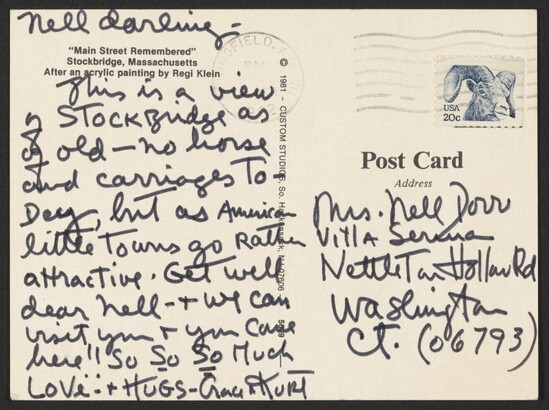 Nell darling -
"Main Street Remembered"
Stockbridge, Massachusetts
After an acrylic painting by Regi Klein
This is a view
of STOCKBridge as
of old - no horse
and carriages To-
Day, but as American
little Towns go Rather
attractive. Get well
dear Nell - + we can
visit you + you come
here!! So So So Much
LOVE + HUGS - Grace + KURT
© 1981 - CUSTOM STUDIOS, So. Hackensack, NJ 07606
NGFIELD,
PM
USA
20c
Post Card
Address
Mrs. Nell Dorr
Villa Serena
Nettleton Hollow Rd
Washington
CT. (06793)